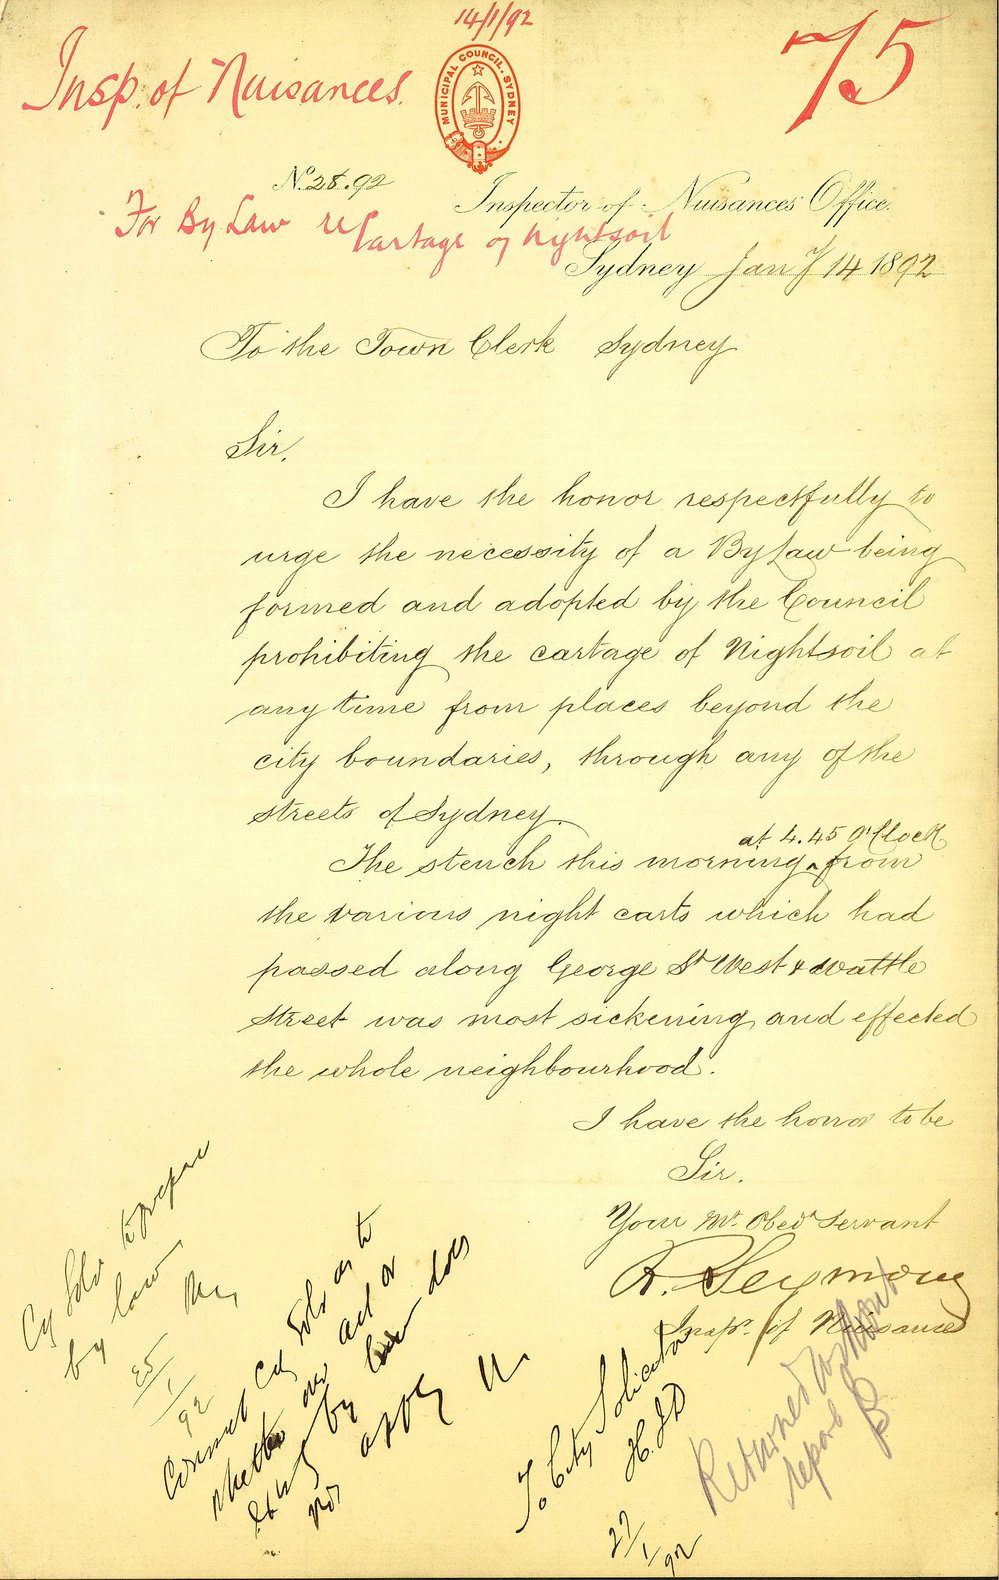 14/1/92
Insp. of Nuisances.
75
MUNICIPAL COUNCIL. SYDNEY
No. 28.92
Inspector of Nuisances Office.
For By Law re Cartage of Nightsoil
Sydney Jany 14 1892
To the Town Clerk Sydney
Sir,
I have the honor respectfully to
urge the necessity of a By Law being
formed and adopted by the Council
prohibiting the cartage of Nightsoil at
any time from places beyond the
city boundaries, through any of the
streets of Sydney.
at 4.45 O'Clock
The stench this morning ^ from
the various night carts which had
passed along George St West & Wattle
street was most sickening and effected
the whole neighbourhood.
I have the honor to be
Sir.
Your Mt. Obedt Servant
R. Seymour
Insp. of Nuisances
Cy Solr to prepare
by law
25/1/92
Consult City Solr as to
whether our act or
existing by law does
not apply
To City Solicitor
H.J.D
27/1/92
Returned without
report